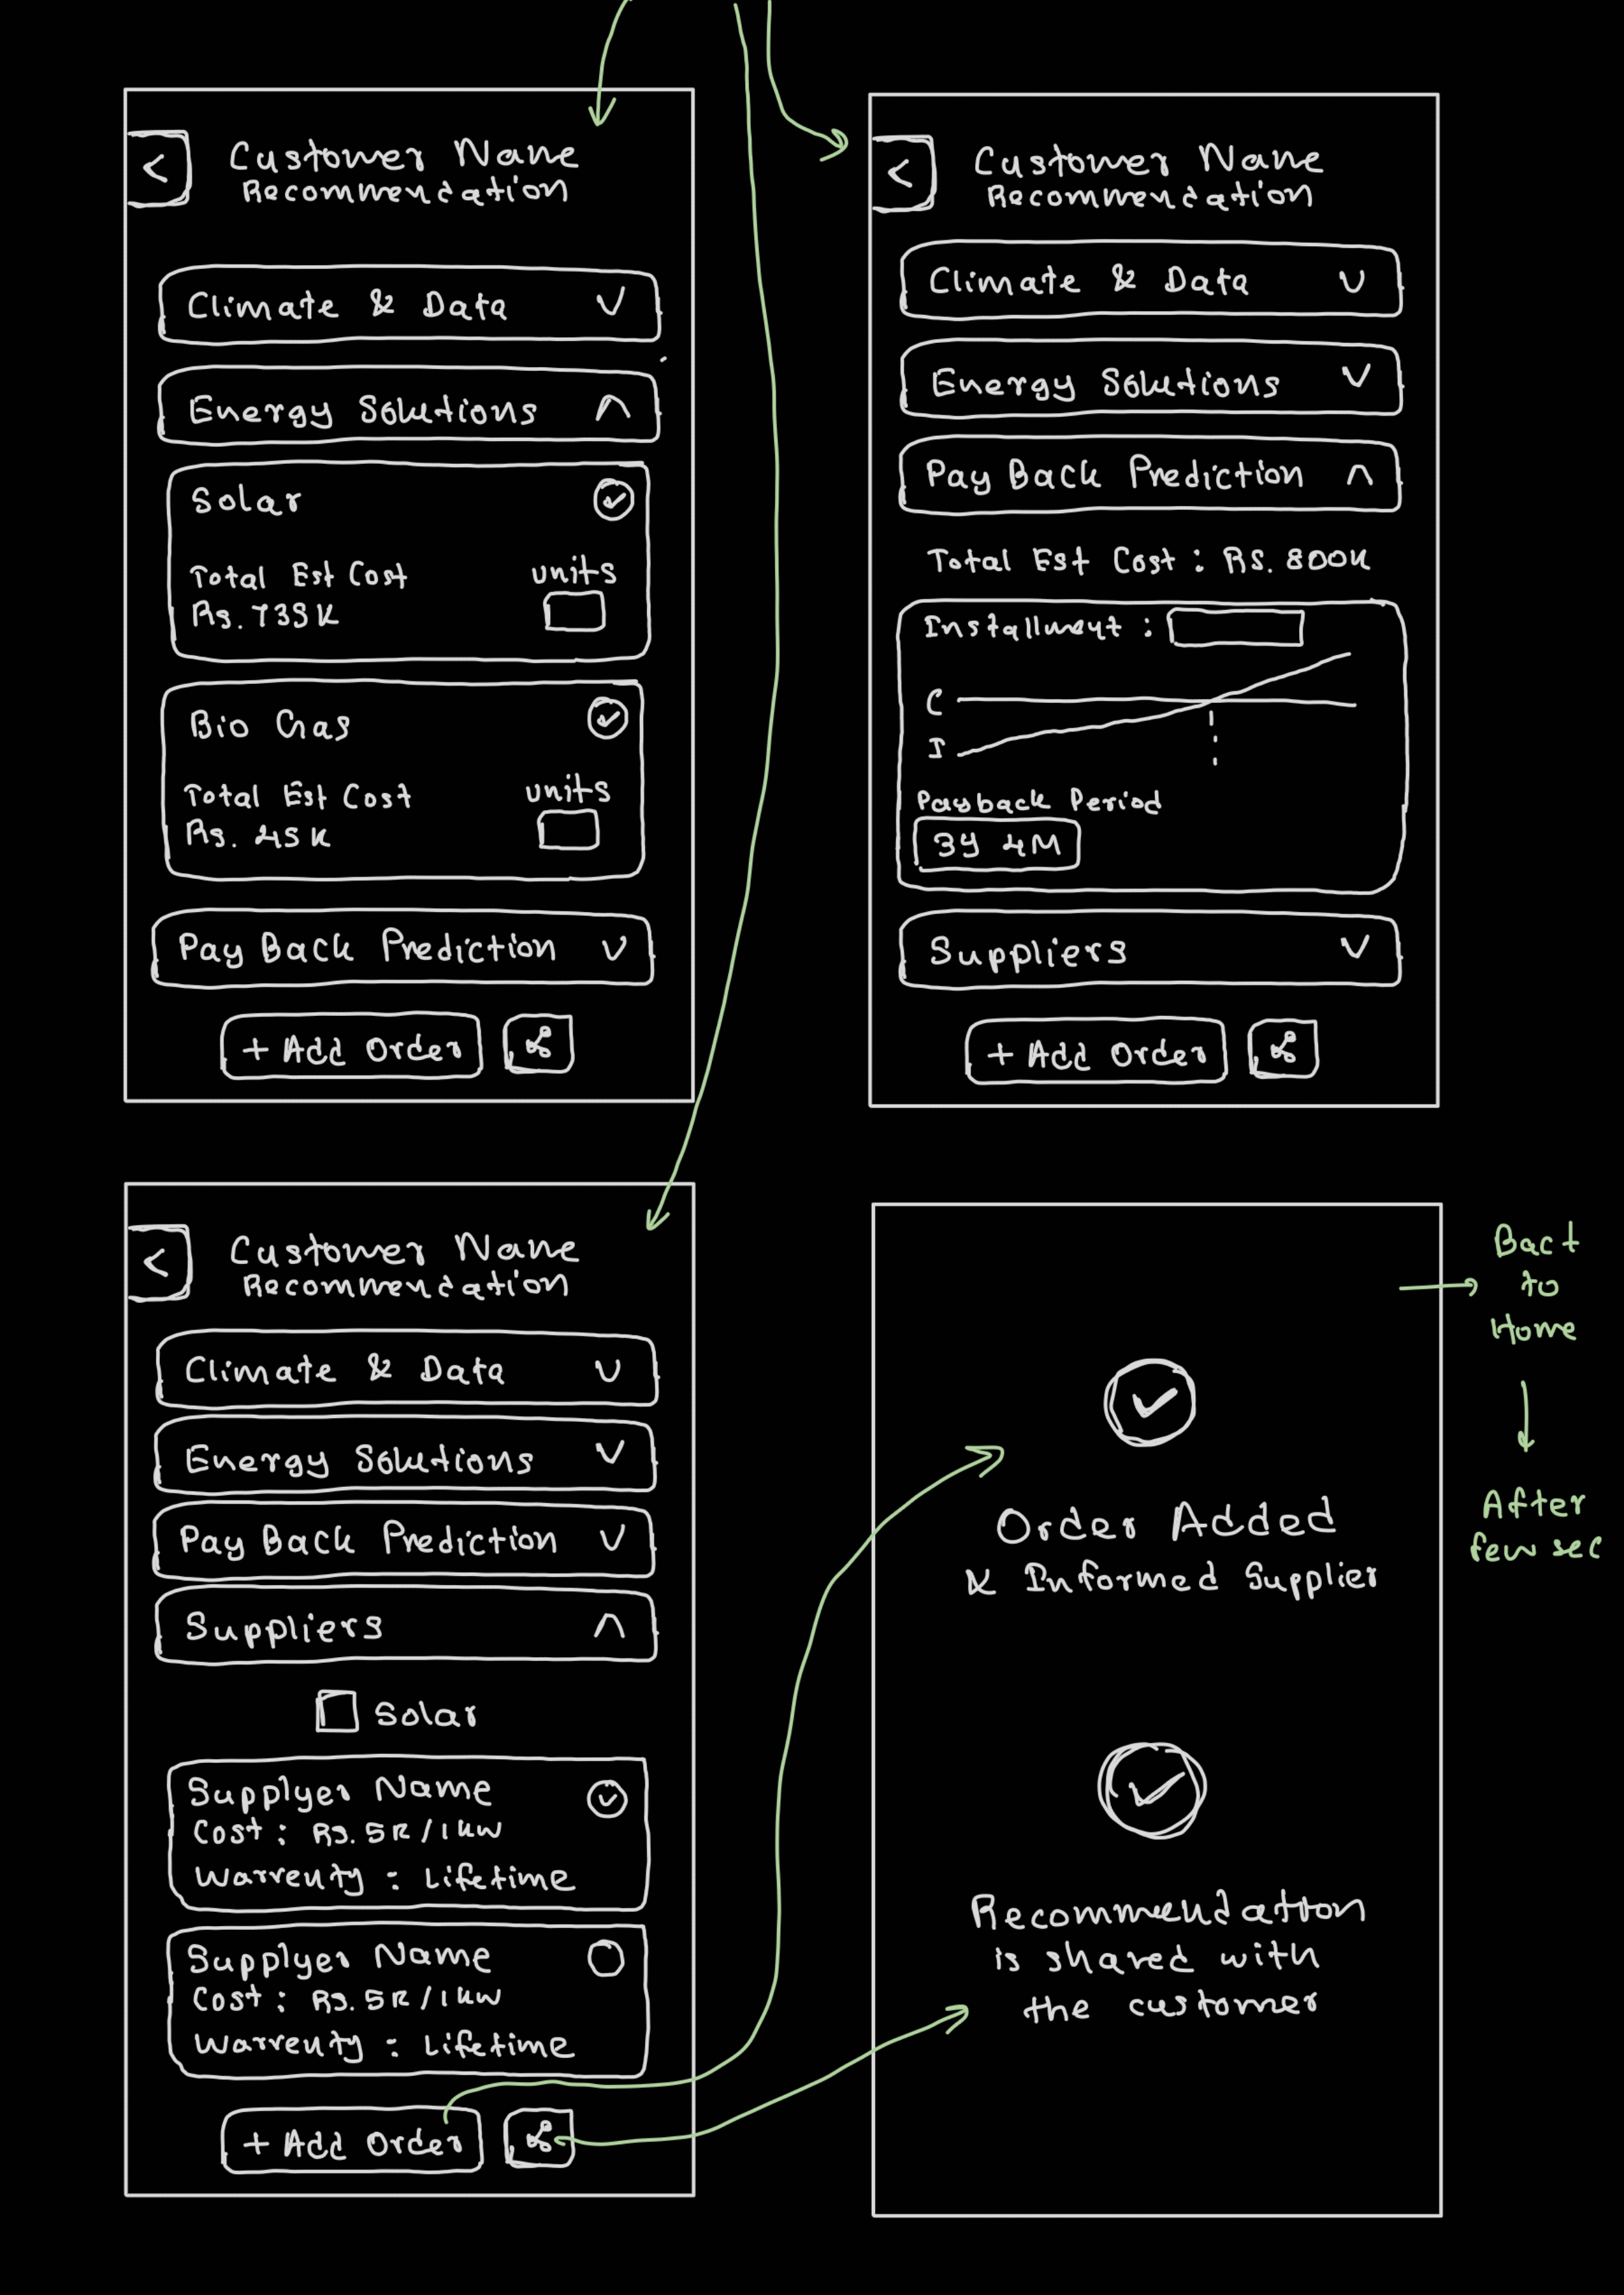 <
Customer Name
Recommendation
Climate & Data
Energy Solutions
Solar
Total Est Cost
units
Rs. 735K
Bio Gas
Total Est Cost
units
Rs. 45K
Pay Back Prediction
+ Add Order
<
Customer Name
Recommendation
Climate & Data
Energy Solutions
Pay Back Prediction
Total Est Cost : Rs. 800K
Installment :
C
I
Payback Period
3Y 4M
Suppliers
+ Add Order
<
Customer Name
Recommendation
Climate & Data
Energy Solutions
Pay Back Prediction
Suppliers
Solar
Supplyer Name
Cost : Rs. 5K / 1KW
Warrenty : Lifetime
Supplyer Name
Cost : Rs. 5K / 1KW
Warrenty : Lifetime
+ Add Order
Order Added
& Informed Supplier
Recommendation
is shared with
the customer
Bact
to
Home
After
few sec